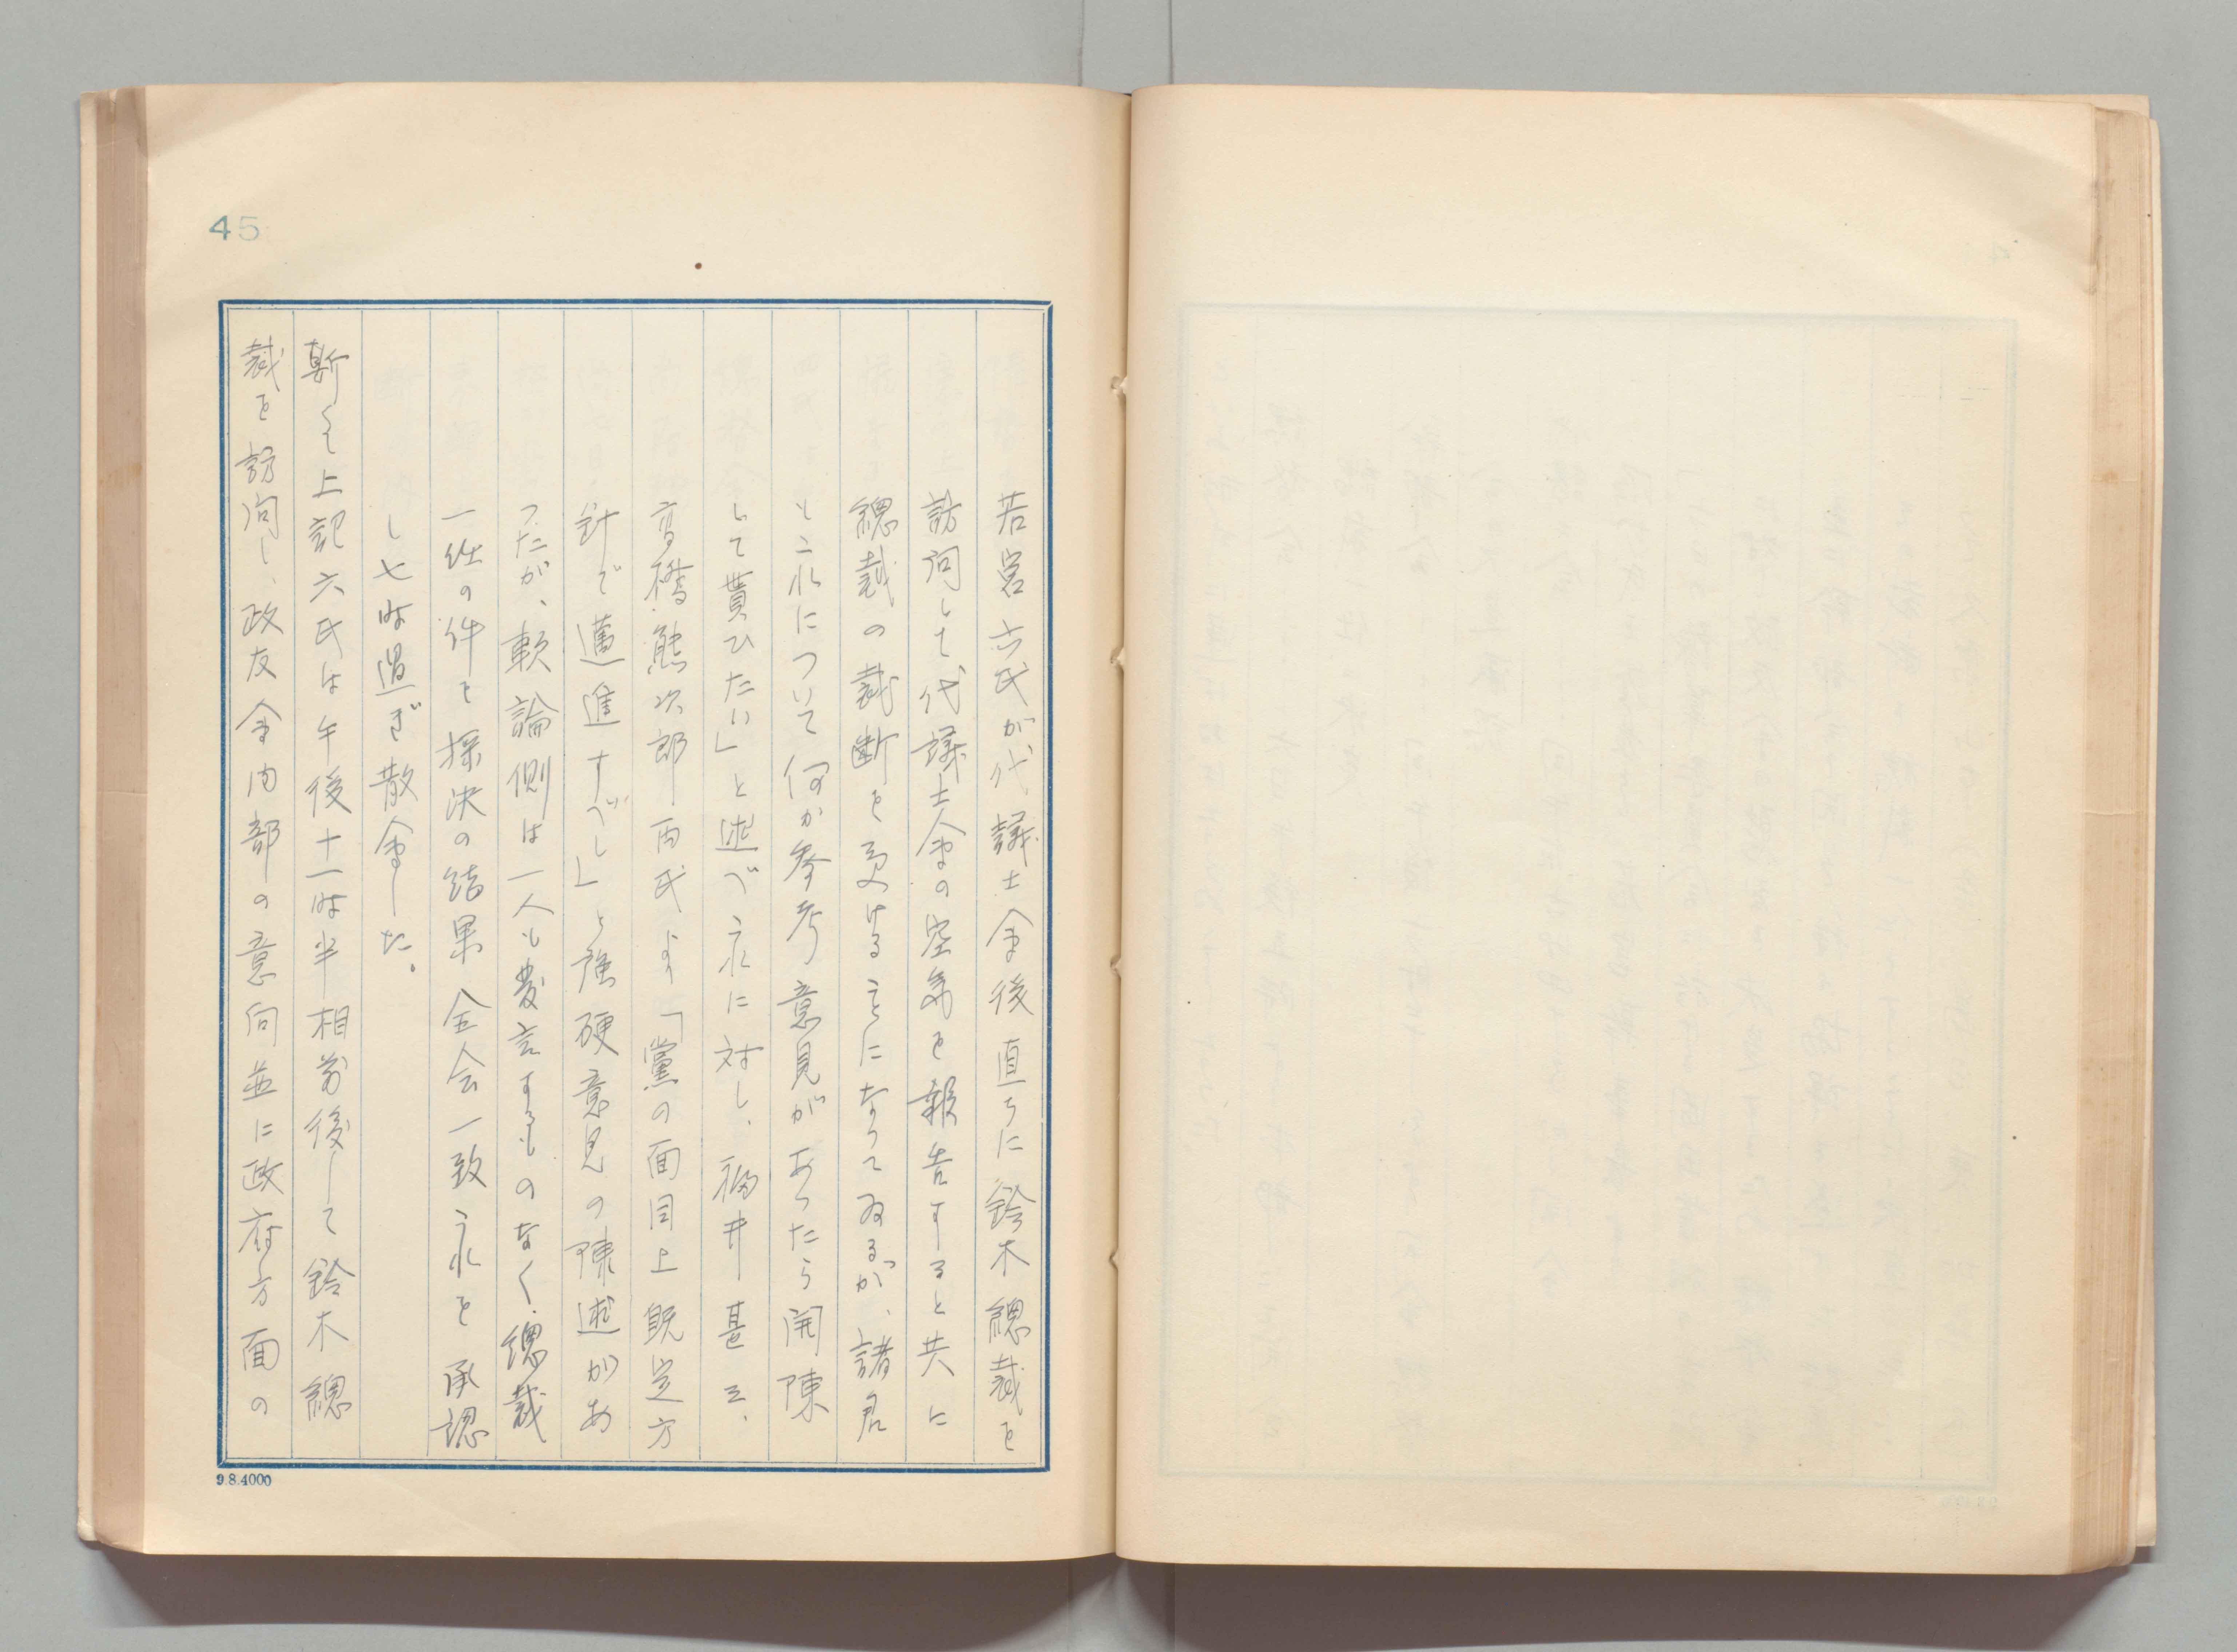 45
若宮六氏が代議士会後直ちに鈴木總裁を
訪問して代議士会の空気を報告すると共に
總裁の裁断を受けることになってゐるが、諸君
もこれについて何か参考意見があったら開陳
して貰ひたい」と述べ之に対し、福井甚三、
高橋熊次郎両氏より「黨の面目上既定方
針で邁進すべし」と強硬意見の陳述があ
つたが、軟論側は一人も発言するものなく、總裁
一任の件を採決の結果全会一致之を承認
し七时過ぎ散会した。
斯くて上記六氏は午後十一时半相前後して鈴木總
裁を訪問し、政友会内部の意向並に政府方面の
9.8.4000